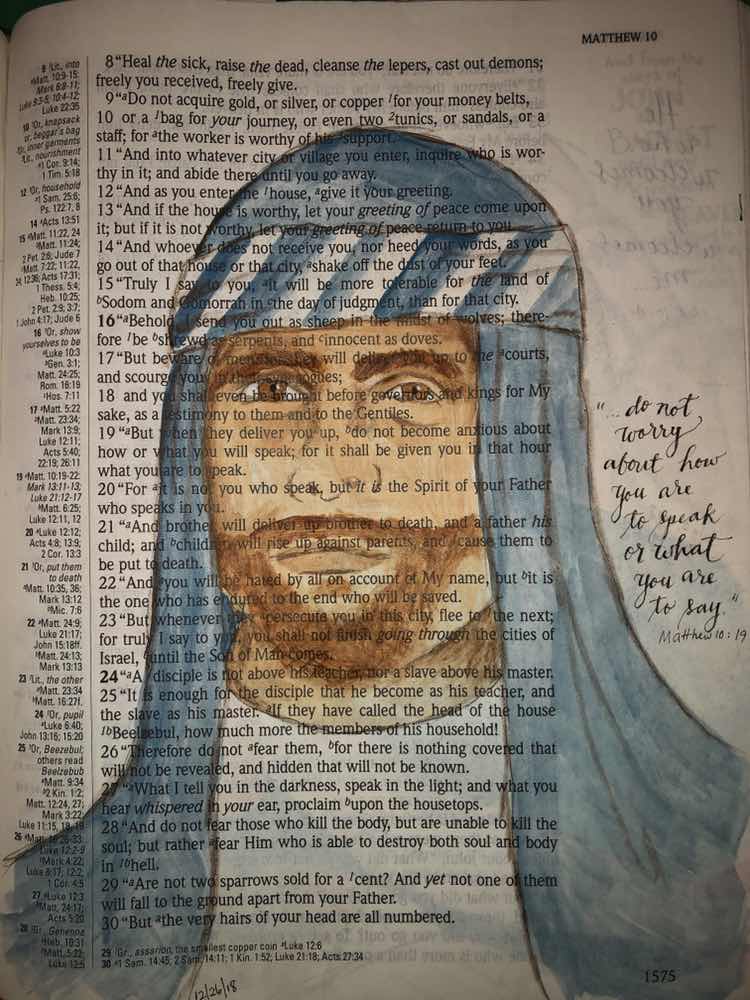 MATTHEW 10
8 “Heal the sick, raise the dead, cleanse the lepers, cast out demons;
freely you received, freely give.
9 “ªDo not acquire gold, or silver, or copper ¹for your money belts,
10 or a ¹bag for your journey, or even two ²tunics, or sandals, or a
staff; for ªthe worker is worthy of his ³support.
11 “And into whatever city or village you enter, inquire who is wor-
thy in it; and abide there until you go away.
12 “And as you enter the ¹house, ªgive it your greeting.
13 “And if the house is worthy, let your greeting of peace come upon
it; but if it is not worthy, let your greeting of peace return to you.
14 “And whoever does not receive you, nor heed your words, as you
go out of that house or that city, ªshake off the dust of your feet.
15 “Truly I say to you, ªit will be more tolerable for the land of
ᵇSodom and Gomorrah in ᶜthe day of judgment, than for that city.
16 “ªBehold, I send you out as sheep in the midst of wolves; there-
fore ¹be ᵇshrewd as serpents, and ᶜinnocent as doves.
17 “But beware of men; for they will deliver you up to the ªcourts,
and scourge you in their synagogues;
18 and you shall even be brought before governors and kings for My
sake, as a testimony to them and to the Gentiles.
19 “ªBut when they deliver you up, ᵇdo not become anxious about
how or what you will speak; for it shall be given you in that hour
what you are to speak.
20 “For ªit is not you who speak, but it is the Spirit of your Father
who speaks in you.
21 “ªAnd brother will deliver up brother to death, and a father his
child; and ᵇchildren will rise up against parents, and ¹cause them to
be put to death.
22 “And ªyou will be hated by all on account of My name, but ᵇit is
the one who has endured to the end who will be saved.
23 “But whenever they persecute you in this city, flee to the next;
for truly I say to you, you shall not finish going through the cities of
Israel, until the Son of Man comes.
24 “ªA disciple is not above his teacher, nor a slave above his master.
25 “It is enough for the disciple that he become as his teacher, and
the slave as his master. ªIf they have called the head of the house
¹ᵇBeelzebul, how much more the members of his household!
26 “Therefore do not ªfear them, ᵇfor there is nothing covered that
will not be revealed, and hidden that will not be known.
27 “ªWhat I tell you in the darkness, speak in the light; and what you
hear whispered in your ear, proclaim ᵇupon the housetops.
28 “And do not fear those who kill the body, but are unable to kill the
soul; but rather ªfear Him who is able to destroy both soul and body
in ¹ᵇhell.
29 “ªAre not two sparrows sold for a ¹cent? And yet not one of them
will fall to the ground apart from your Father.
30 “But ªthe very hairs of your head are all numbered.
9 ¹Lit., into
ªMatt. 10:9-15:
Mark 6:8-11;
Luke 9:3-5; 10:4-12;
Luke 22:35
10 ¹Or, knapsack
or, beggar's bag
²Or, inner garments
³Lit., nourishment
ª1 Cor. 9:14;
1 Tim. 5:18
12 ¹Or, household
ª1 Sam. 25:6;
Ps. 122:7, 8
14 ªActs 13:51
15 ªMatt. 11:22, 24
ᵇMatt. 11:24;
2 Pet. 2:6; Jude 7
ᶜMatt. 7:22; 11:22,
24; 12:36; Acts 17:31;
1 Thess. 5:4;
Heb. 10:25;
2 Pet. 2:9; 3:7;
1 John 4:17; Jude 6
16 ¹Or, show
yourselves to be
ªLuke 10:3
ᵇGen. 3:1;
Matt. 24:25;
Rom. 16:19
ᶜHos. 7:11
17 ªMatt. 5:22
Matt. 23:34;
Mark 13:9;
Luke 12:11;
Acts 5:40;
22:19; 26:11
19 ªMatt. 10:19-22:
Mark 13:11-13;
Luke 21:12-17
ᵇMatt. 6:25;
Luke 12:11, 12
20 ªLuke 12:12;
Acts 4:8; 13:9;
2 Cor. 13:3
21 ¹Or, put them
to death
ªMatt. 10:35, 36;
Mark 13:12
ᵇMic. 7:6
22 ªMatt. 24:9;
Luke 21:17;
John 15:18ff.
ᵇMatt. 24:13;
Mark 13:13
23 ¹Lit., the other
ªMatt. 23:34
ᵇMatt. 16:27f.
24 ¹Or, pupil
ªLuke 6:40;
John 13:16; 15:20
25 ¹Or, Beezebul;
others read
Beelzebub
ªMatt. 9:34
ᵇ2 Kin. 1:2;
Matt. 12:24, 27;
Mark 3:22;
Luke 11:15, 18, 19
26 ªMatt. 10:26-33:
Luke 12:2-9
ᵇMark 4:22;
Luke 8:17; 12:2;
1 Cor. 4:5
27 ªLuke 12:3
ᵇMatt. 24:17;
Acts 5:20
28 ¹Gr., Gehenna
ªHeb. 10:31
ᵇMatt. 5:22;
Luke 12:5
29 ¹Gr., assarion, the smallest copper coin ªLuke 12:6
30 ª1 Sam. 14:45; 2 Sam. 14:11; 1 Kin. 1:52; Luke 21:18; Acts 27:34
"...do not
worry
about how
you are
to speak
or what
you are
to say."
Matthew 10:19
1575
12/26/18